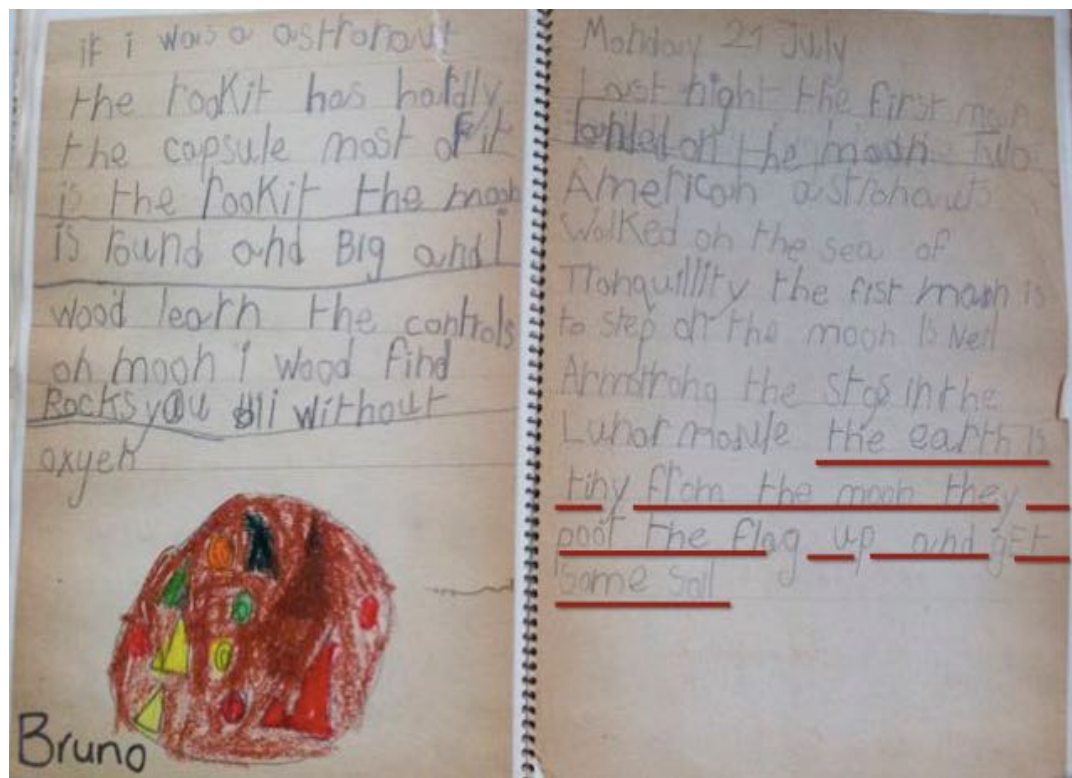 if i was a astronaut
the rookit has hardly
the capsule most of it
is the rookit the moon
is round and Big and I
wood learn the controls
on moon i wood find
Rocks you without
oxyen
Bruno
Monday 21 July
Last night the first man
landed on the moon Two
American astronauts
Walked on the sea of
Tranquillity the fist man is
to step on the moon is Neil
Armstrong the in the
Lunar module the earth is
tiny from the moon they
poot the flag up and gEt
some Soil